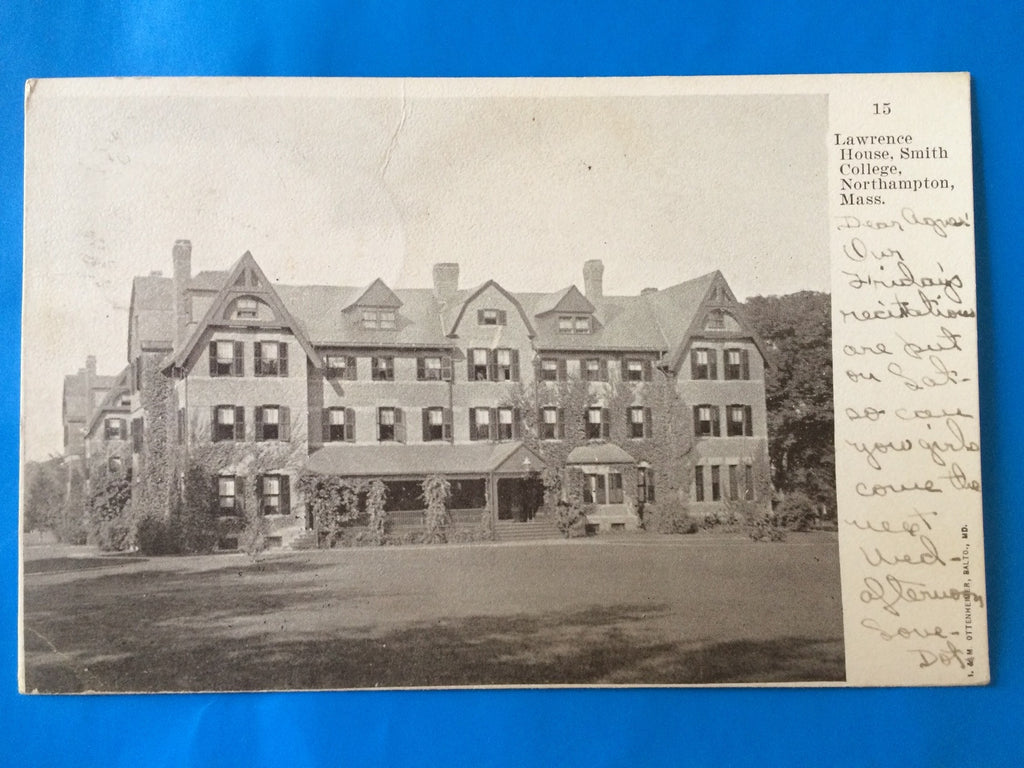 15
Lawrence
House, Smith
College,
Northampton,
Mass.
Dear Agnes!
Our
Friday's
recitations
are put
on Sat-
so can
you girls
come the
next
Wed-
afternoon
Love-
Dot.
I. & M. OTTENHEIMER, BALTO., MD.